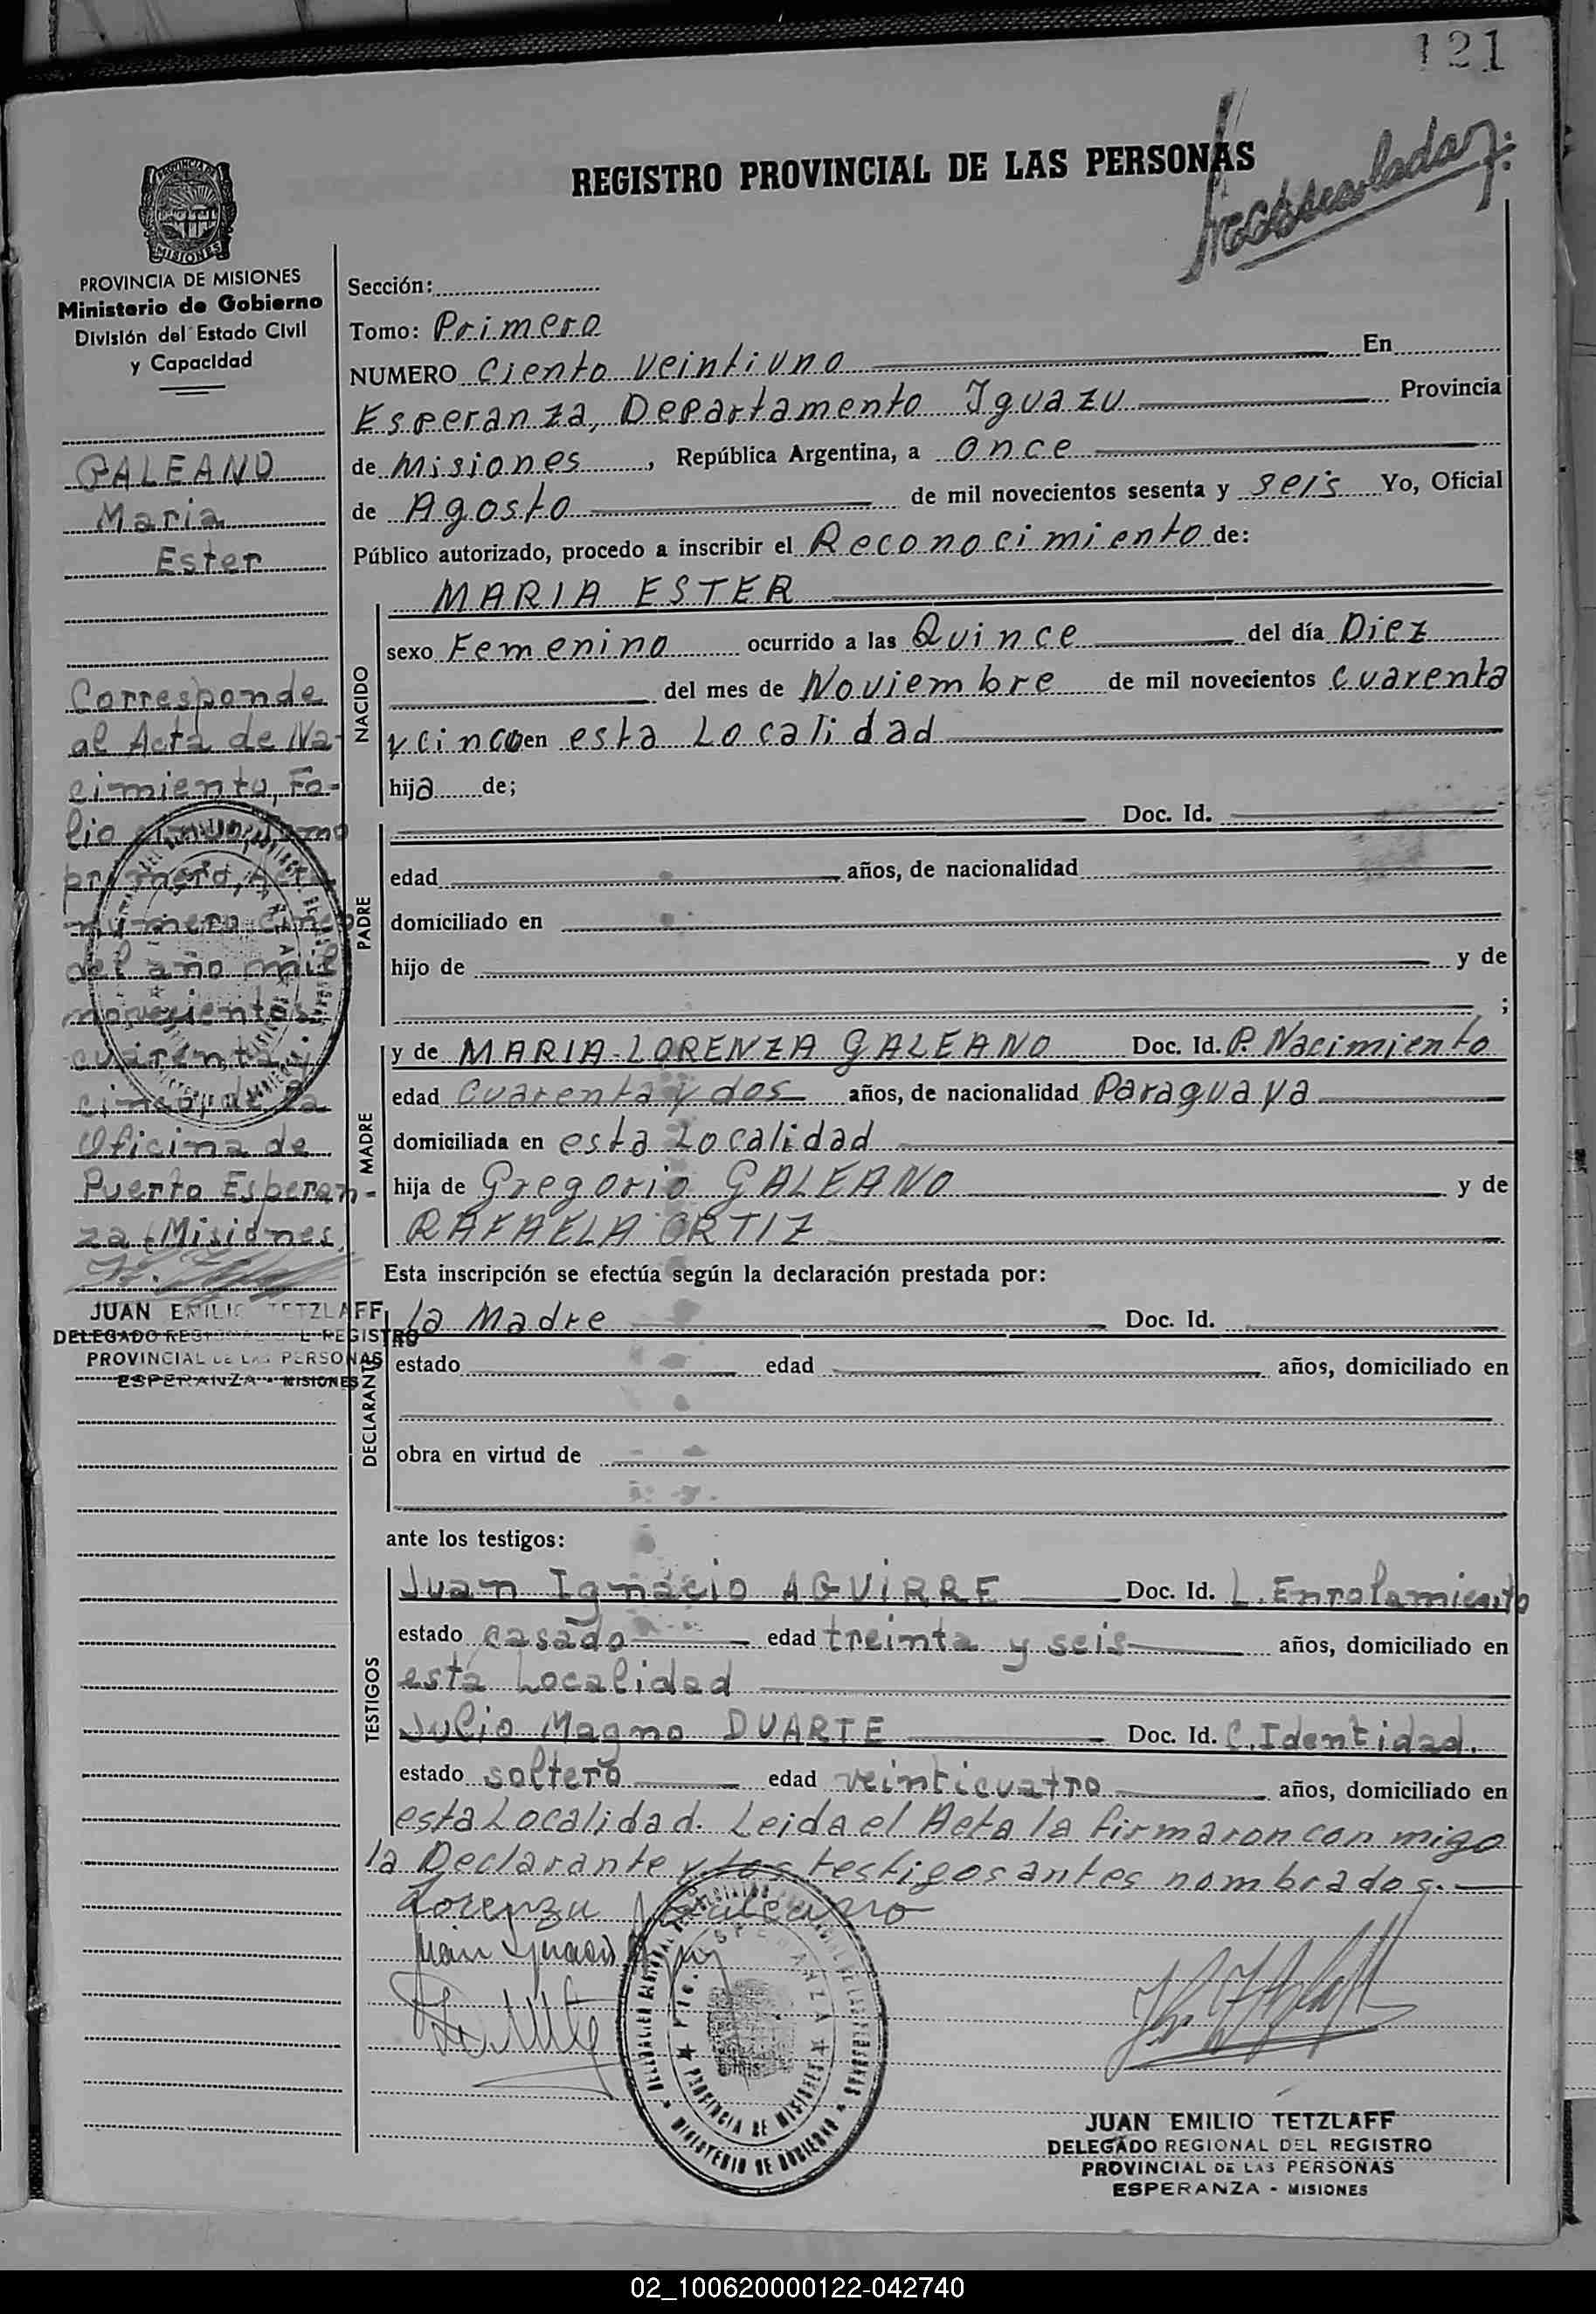 121
REGISTRO PROVINCIAL DE LAS PERSONAS
PROVINCIA DE
MISIONES
PROVINCIA DE MISIONES
Ministerio de Gobierno
División del Estado Civil
y Capacidad
GALEANO
Maria
Ester
Corresponde
al Acta de Na-
cimiento, Fo-
lio
primero, Acta
numero cinco
del año mil
novecientos
cuarenta y
cinco, de la
Oficina de
Puerto Esperan-
za (Misiones)
JUAN EMILIO TETZLAFF
DELEGADO REGIONAL DEL REGISTRO
PROVINCIAL DE LAS PERSONAS
ESPERANZA - MISIONES
Sección:
Tomo: Primero
NUMERO Ciento Veintiuno En
Esperanza, Departamento Iguazu Provincia
de Misiones, República Argentina, a once
de Agosto de mil novecientos sesenta y seis Yo, Oficial
Público autorizado, procedo a inscribir el Reconocimiento de:
NACIDO
MARIA ESTER
sexo Femenino ocurrido a las Quince del día Diez
del mes de Noviembre de mil novecientos cuarenta
y cinco en esta Localidad
hija de;
PADRE
Doc. Id.
edad años, de nacionalidad
domiciliado en
hijo de y de
;
MADRE
y de MARIA-LORENZA GALEANO Doc. Id. P. Nacimiento
edad Cuarenta y dos años, de nacionalidad Paraguaya
domiciliada en esta Localidad
hija de Gregorio GALEANO y de
RAFAELA ORTIZ
Esta inscripción se efectúa según la declaración prestada por:
DECLARANTE
la Madre Doc. Id.
estado edad años, domiciliado en
obra en virtud de
ante los testigos:
TESTIGOS
Juan Ignacio AGUIRRE Doc. Id. L. Enrolamiento
estado casado edad treinta y seis años, domiciliado en
esta Localidad
Julio Magno DUARTE Doc. Id. C. Identidad.
estado soltero edad veinticuatro años, domiciliado en
esta Localidad. Leida el Acta la firmaron con migo
la Declarante y los testigos antes nombrados.
Lorenza Galeano
Juan Ignacio
ESPERANZA
PROVINCIA DE MISIONES
MINISTERIO DE GOBIERNO
JUAN EMILIO TETZLAFF
DELEGADO REGIONAL DEL REGISTRO
PROVINCIAL DE LAS PERSONAS
ESPERANZA - MISIONES
02_100620000122-042740